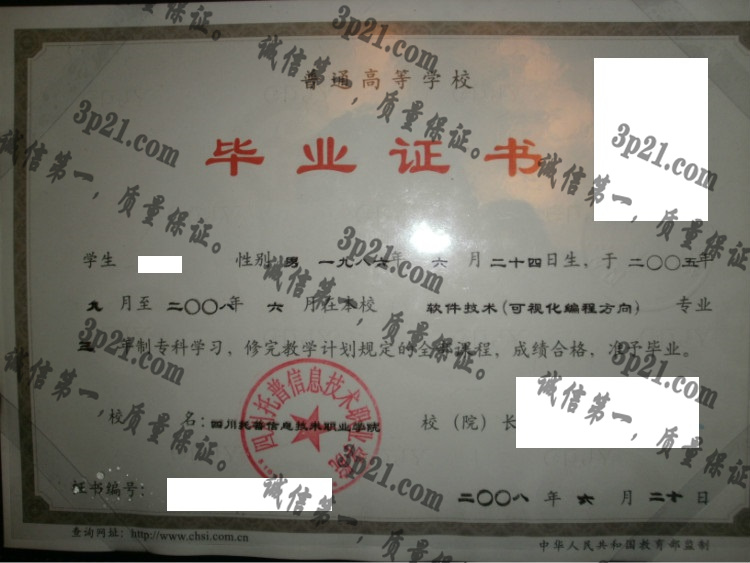 普通高等学校
毕业证书
学生 性别 男 一九八六年 六 月 二十四日生，于 二〇〇五年
九 月至 二〇〇八年 六 月在本校 软件技术(可视化编程方向) 专业
三 年制专科学习，修完教学计划规定的全部课程，成绩合格，准予毕业。
校 名：四川托普信息技术职业学院 校（院）长
四川托普信息技术职业学院
证书编号： 二〇〇八 年 六 月 二十日
查询网址：http://www.chsi.com.cn 中华人民共和国教育部监制
3p21.com
诚信第一，质量保证。
3p21.com
诚信第一，质量保证。
3p21.com
诚信第一，质量保证。
3p21.com
诚信第一，质量保证。
3p21.com
诚信第一，质量保证。
3p21.com
诚信第一，质量保证。
3p21.com
诚信第一，质量保证。